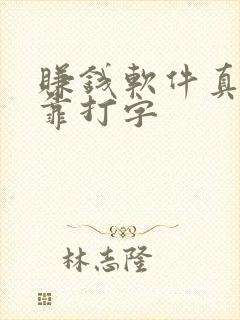 賺錢軟件真
靠打字
林志隆